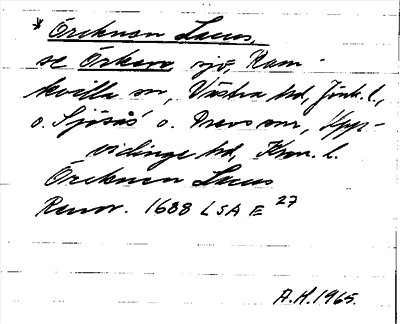 * Örcknan Lacus,
se Örkaren, sjö, Ram-
kvilla sn, Västra hd, Jönk. l.,
o. Sjösås o. Drevs snr, Upp-
vidinge hd, Kron. l.
Örcknan Lacus
Renov. 1688 LSA E 27
A.H. 1965.